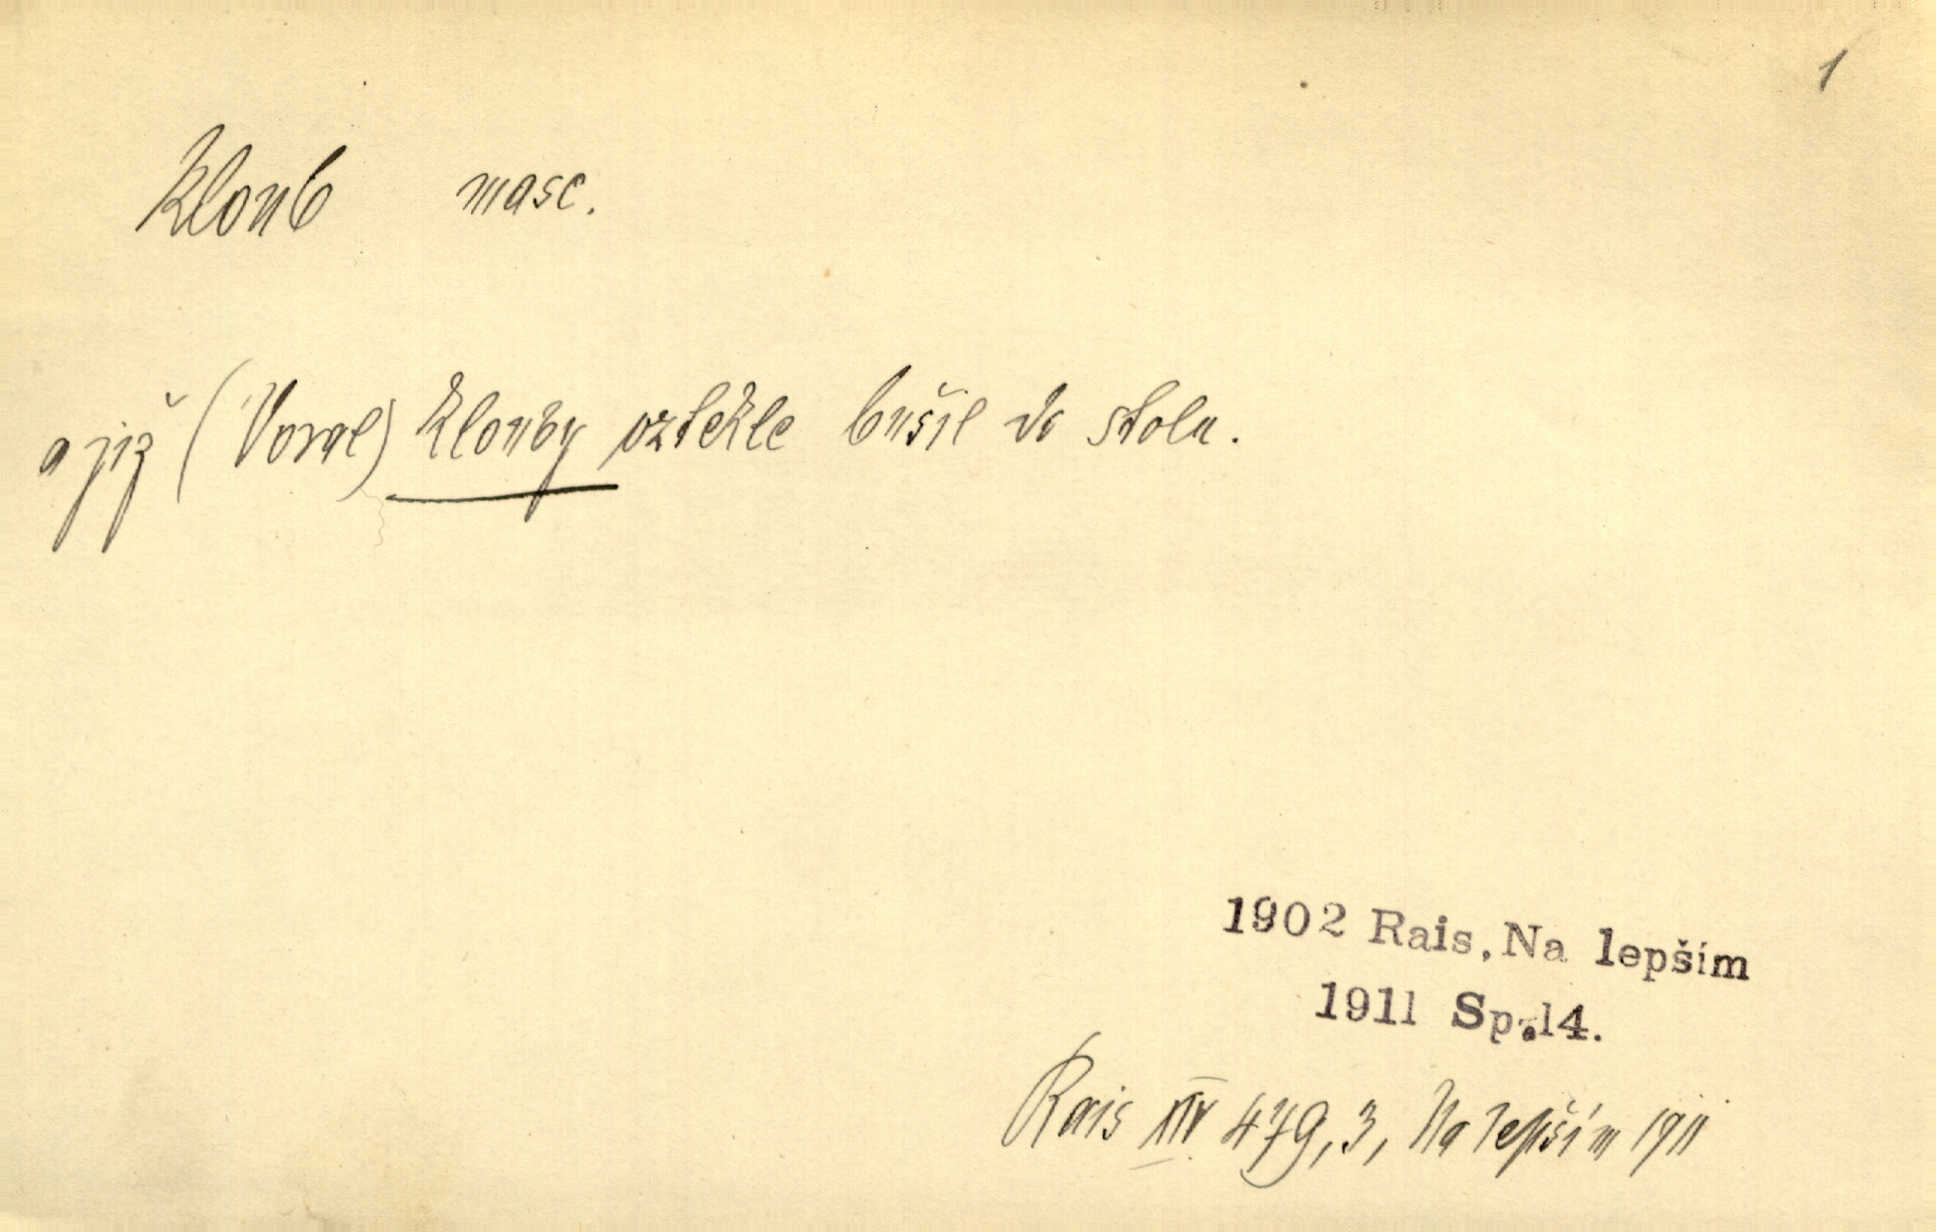 1
kloub masc.
a již (Voral) klouby vztekle bušil do stolu.
1902 Rais, Na lepším
1911 Sp. 14.
Rais XIV 479,3, Na lepším 1911